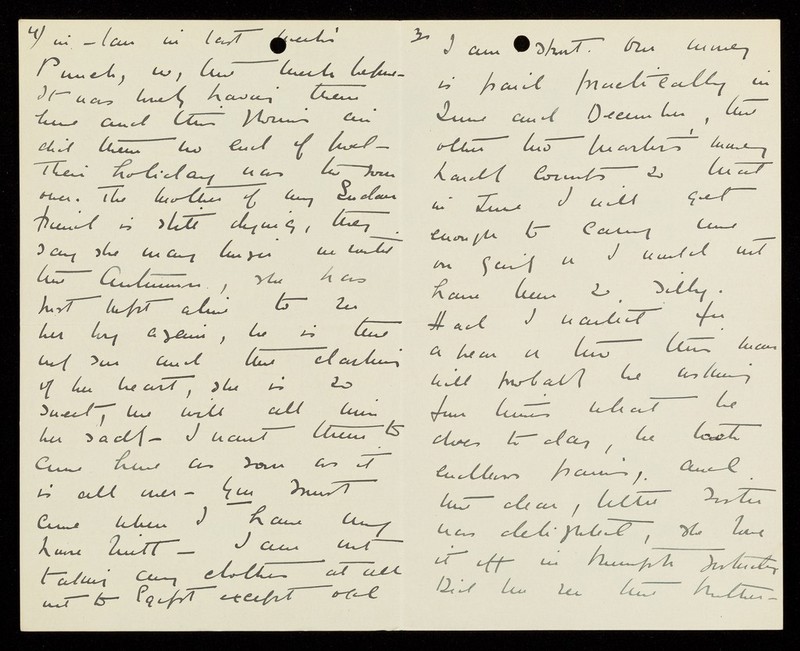 4) in-law in last week's
Punch, or, the week before -
It was lovely having them
here and this glorious air
did them no end of good -
Their holiday was too soon
over. The Mother of my Sudan
friend is still dying, they
say she may linger on until
the Autumn, she has
just kept alive to see
her boy again, he is the
only son and the darling
of her heart, she is so
sweet, we will all miss
her sadly - I want them to
come here as soon as it
is all over - You must
come when I have my
house built - I am not
taking any clothes at all
out to Egypt except old
3) I am short. Our money
is paid practically in
June and December, the
other two quarters' money
hardly counts so that
in June I will get
enough to carry me
on going or I would not
have been so silly.
Had I waited for
a year or two this man
will probably be asking
four times what he
does to day, he took
endless pains, and
the dear little Sister
was delighted, she bore
it off in triumph
Did you see the Mother-